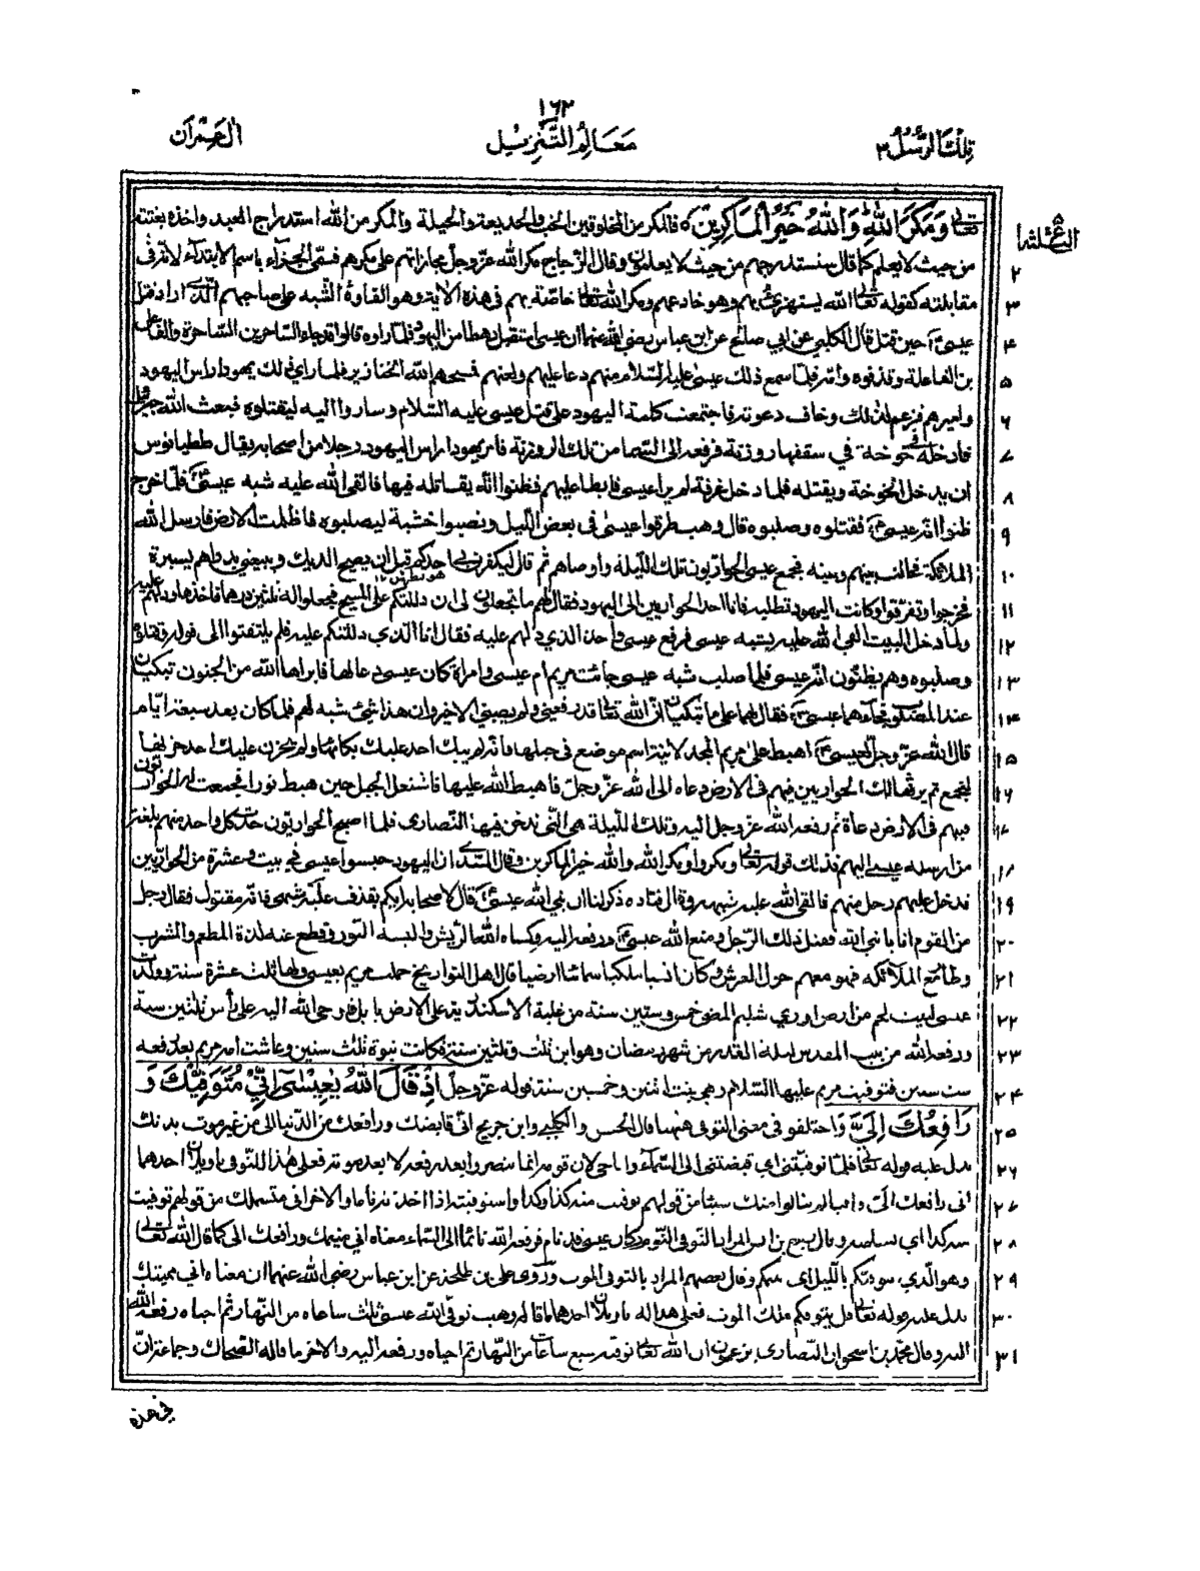 ١٦٣
تلك الرسل ٣ معالم التنزيل ال عمران
الثلثة
تعالى وَمَكَرَ اللّٰهُ وَاللّٰهُ خَيْرُ الْمَاكِرِيْنَ فالمكر من المخلوقين الخبث والخديعة والحيلة والمكر من الله استدراج العبد واخذه بغتة
٢ من حيث لا يعلم كما قال سنستدرجهم من حيث لا يعلمون وقال الزجاج مكر الله عزّ وجل مجازاتهم على مكرهم فسمّى الجزاء باسم الابتداء لانه في
٣ مقابلته كقوله تعالى الله يستهزئ بهم وهو خادعهم ومكر الله تعالى خاصّة بهم في هذه الاية وهو القاؤه الشبه على صاحبهم الّذي اراد قتل
٤ عيسى حين قتل قال الكلبي عن ابي صالح عن ابن عباس رضي الله عنهما ان عيسى استقبل رهطا من اليهود فلما راوه قالوا قد جاء الساحر بن الساحرة والفاعل
٥ بن الفاعلة وقذفوه وامه فلما سمع ذلك عيسى عليه السلام منهم دعا عليهم ولعنهم فمسخهم الله الخنازير فلما راى ذلك يهودا راس اليهود
٦ واميرهم فزع لذلك وخاف دعوته فاجتمعت كلمة اليهود على قتل عيسى عليه السلام وساروا اليه ليقتلوه فبعث الله جبرئيل
٧ فادخله في خوخة في سقفها روزنة فرفعه الى السماء من تلك الروزنة فامر يهودا راس اليهود رجلا من اصحابه يقال ططيانوس
٨ ان يدخل الخوخة ويقتله فلما دخل غرفة لم ير عيسى فابطا عليهم فظنوا انه يقاتله فيها فالقى الله عليه شبه عيسى فلما خرج
٩ ظنوا انه عيسى فقتلوه وصلبوه قال وهب طرقوا عيسى في بعض الليل ونصبوا خشبة ليصلبوه فاظلمت الارض فارسل الله
١٠ الملائكة فحالت بينهم وبينه فجمع عيسى الحواريون تلك الليلة واوصاهم ثم قال ليكفرن بي احدكم قبل ان يصيح الديك ويبيعني بدراهم يسيرة
١١ فخرجوا وتفرقوا وكانت اليهود تطلبه فاتا احد الحواريين الى اليهود فقال لهم ما تجعلون لي ان دللتكم على المسيح فجعلوا له ثلثين درهما فاخذها ودلهم عليه
١٢ ولما دخل البيت القى الله عليه شبه عيسى فرفع عيسى واخذ الذي دلهم عليه فقال انا الذي دللتكم عليه فلم يلتفتوا الى قوله وقتلوه
١٣ وصلبوه وهم يظنون انه عيسى فلما صلب شبه عيسى جائت مريم ام عيسى وامراة كان عيسى دعا لها فابراها الله من الجنون تبكيان
١٤ عند المصلوب فجاءهما عيسى فقال لهما على ما تبكيان ان الله تعالى قد رفعني ولم يصبني الا خير وان هذا شئ شبه لهم فلما كان بعد سبعة ايام
١٥ قال الله عزّ وجل لعيسى اهبط على مريم المجدلانية اسم موضع في جبلها فانه لم يبك احد عليك بكائها ولم يحزن عليك احد حزنها
١٦ ليجمع ثم يرقها لك الحواريين فبهم في الارض دعاه الى الله عزّ وجلّ فاهبط الله عليها فاشتعل الجبل حين هبط نورا فجمعت له الحواريون
١٧ فبهم في الارض دعاة ثم رفعه الله عز وجل اليه وتلك الليلة هي التي تدخن فيها النصارى فلما اصبح الحواريون حدث كل واحد منهم بلغة
١٨ من ارسله عيسى اليهم فذلك قوله تعالى ومكروا ومكر الله والله خير الماكرين وقال السدي ان اليهود حبسوا عيسى في بيت وعشرة من الحواريين
١٩ فدخل عليهم رجل منهم فالقى الله عليه شبهه وقال قتاده ذكر لنا ان نبي الله عيسى قال لاصحابه ايكم يقذف عليه شبهي فانه مقتول فقال رجل
٢٠ من القوم انا يا نبي الله فقتل ذلك الرجل ومنع الله عيسى ورفعه اليه وكساه الله الريش والبسه النور وقطع عنه لذة المطعم والمشرب
٢١ وطار مع الملائكة فهو معهم حول العرش وكان انسيا ملكيا سمائيا ارضيا قال اهل التواريخ حملت مريم بعيسى ولها ثلث عشرة سنة وولدت
٢٢ عيسى ببيت لحم من ارض اوري شلم لمضي خمس وستين سنة من غلبة الاسكندرية على الارض بابل فاوحى الله اليه على رأس ثلثين سنة
٢٣ ورفعه الله من بيت المقدس ليلة القدر من شهر رمضان وهو ابن ثلث وثلثين سنة فكانت نبوة ثلث سنين وعاشت امه مريم بعد رفعه
٢٤ ست سنين فتوفيت مريم عليها السلام وهي بنت اثنين وخمسين سنة قوله عزّ وجلّ اِذْ قَالَ اللّٰهُ يٰعِيْسٰى اِنِّيْ مُتَوَفِّيْكَ وَ
٢٥ رَافِعُكَ اِلَيَّ واختلفو في معنى التوفي ههنا قال الحسن والكلبي وابن جريج انى قابضك ورافعك من الدنيا الى من غير موت بدنك
٢٦ يدل عليه قوله تعالى فلما توفيتني اي قبضتني الى السماء وانا حي لان قومه انما تنصروا بعد رفعه لا بعد موته فعلى هذا للتوفي تاويلان احدهما
٢٧ انى رافعك الى وافيا لم ينالوا منك شيئا من قولهم توفيت منه كذا وكذا واستوفيته اذا اخذته تاما والاخر انى متسلمك من قولهم توفيت
٢٨ منه كذا اي تسلمته وقال ربيع بن انس المراد بالتوفى النوم وكان عيسى قد نام فرفعه الله نائما الى السماء معناه اني منيمك ورافعك الى كما قال الله تعالى
٢٩ وهو الّذي يتوفاكم بالليل اى ينيمكم وقال بعضهم المراد بالتوفى الموت وروى على بن طلحة عن ابن عباس رضى الله عنهما ان معناه اني مميتك
٣٠ يدل عليه قوله تعالى قل يتوفيكم ملك الموت فعلى هذا له تاويلان احدهما ما قاله وهب توفى الله عيسى ثلث ساعات من النهار ثم احياه ورفعه الله
٣١ اليه وقال محمد بن اسحق ان النصارى يزعمون ان الله تعالى توفيه سبع ساعات من النهار ثم احياه ورفعه اليه والاخر ما قاله الضحاك وجماعة ان
في هذه